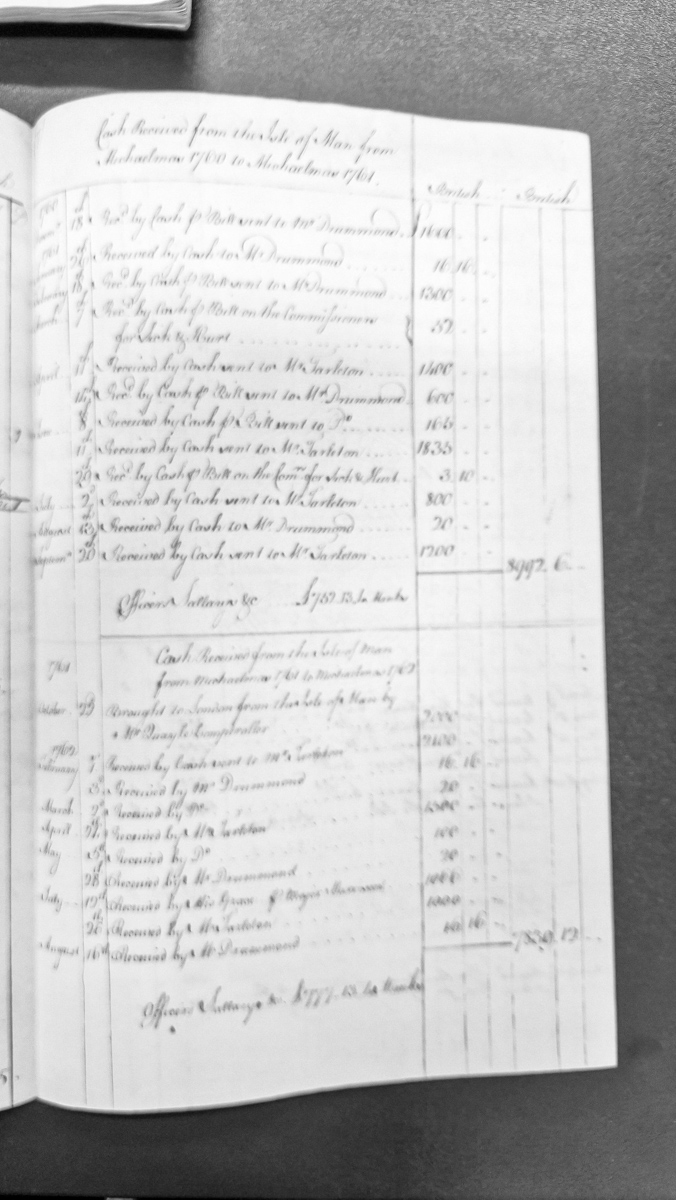 Cash Received from the Isle of Man from
Michaelmas 1760 to Michaelmas 1761.
British British
18 Recd by Cash P Bill sent to Mr Drummond £1600
1761
Received by Cash to Mr Drummond 16 16
18 Recd by Cash P Bill sent to Mr Drummond 1300
March 7 Recd by Cash P Bill on the Commissioners
for 52
April 11 Received by Cash sent to Mr Tarleton 1400
Recd by Cash P Bill sent to Mr Drummond 600
8 Received by Cash P Bill sent to Do 165
11 Received by Cash sent to Mr Tarleton 1835
20 Recd by Cash P Bill on the Comrs for 3 10
July 2d Received by Cash sent to Mr Tarleton 800
August 13 Received by Cash to Mr Drummond 20
20 Received by Cash sent to Mr Tarleton 1200
8992 6
Officers Sallarys &c £752 13
1761 Cash Received from the Isle of Man
from Michaelmas 1761 to Michaelmas 1762
October 23 Brought to London from the Isle of Man by
Mr Quayle Comptroller 2000
1762
February Received by Cash sent to Mr Tarleton 2100
3d Received by Mr Drummond 16 16
March 2d Received by Do 20
April Received by Mr Tarleton 1300
May 5th Received by Do 100
28 Received by Mr Drummond 20
July 12th Received by His Grace P Major
26 Received by Mr Tarleton 1000
August 16th Received by Mr Drummond 16
7839 12
Officers Sallarys &c £777 13